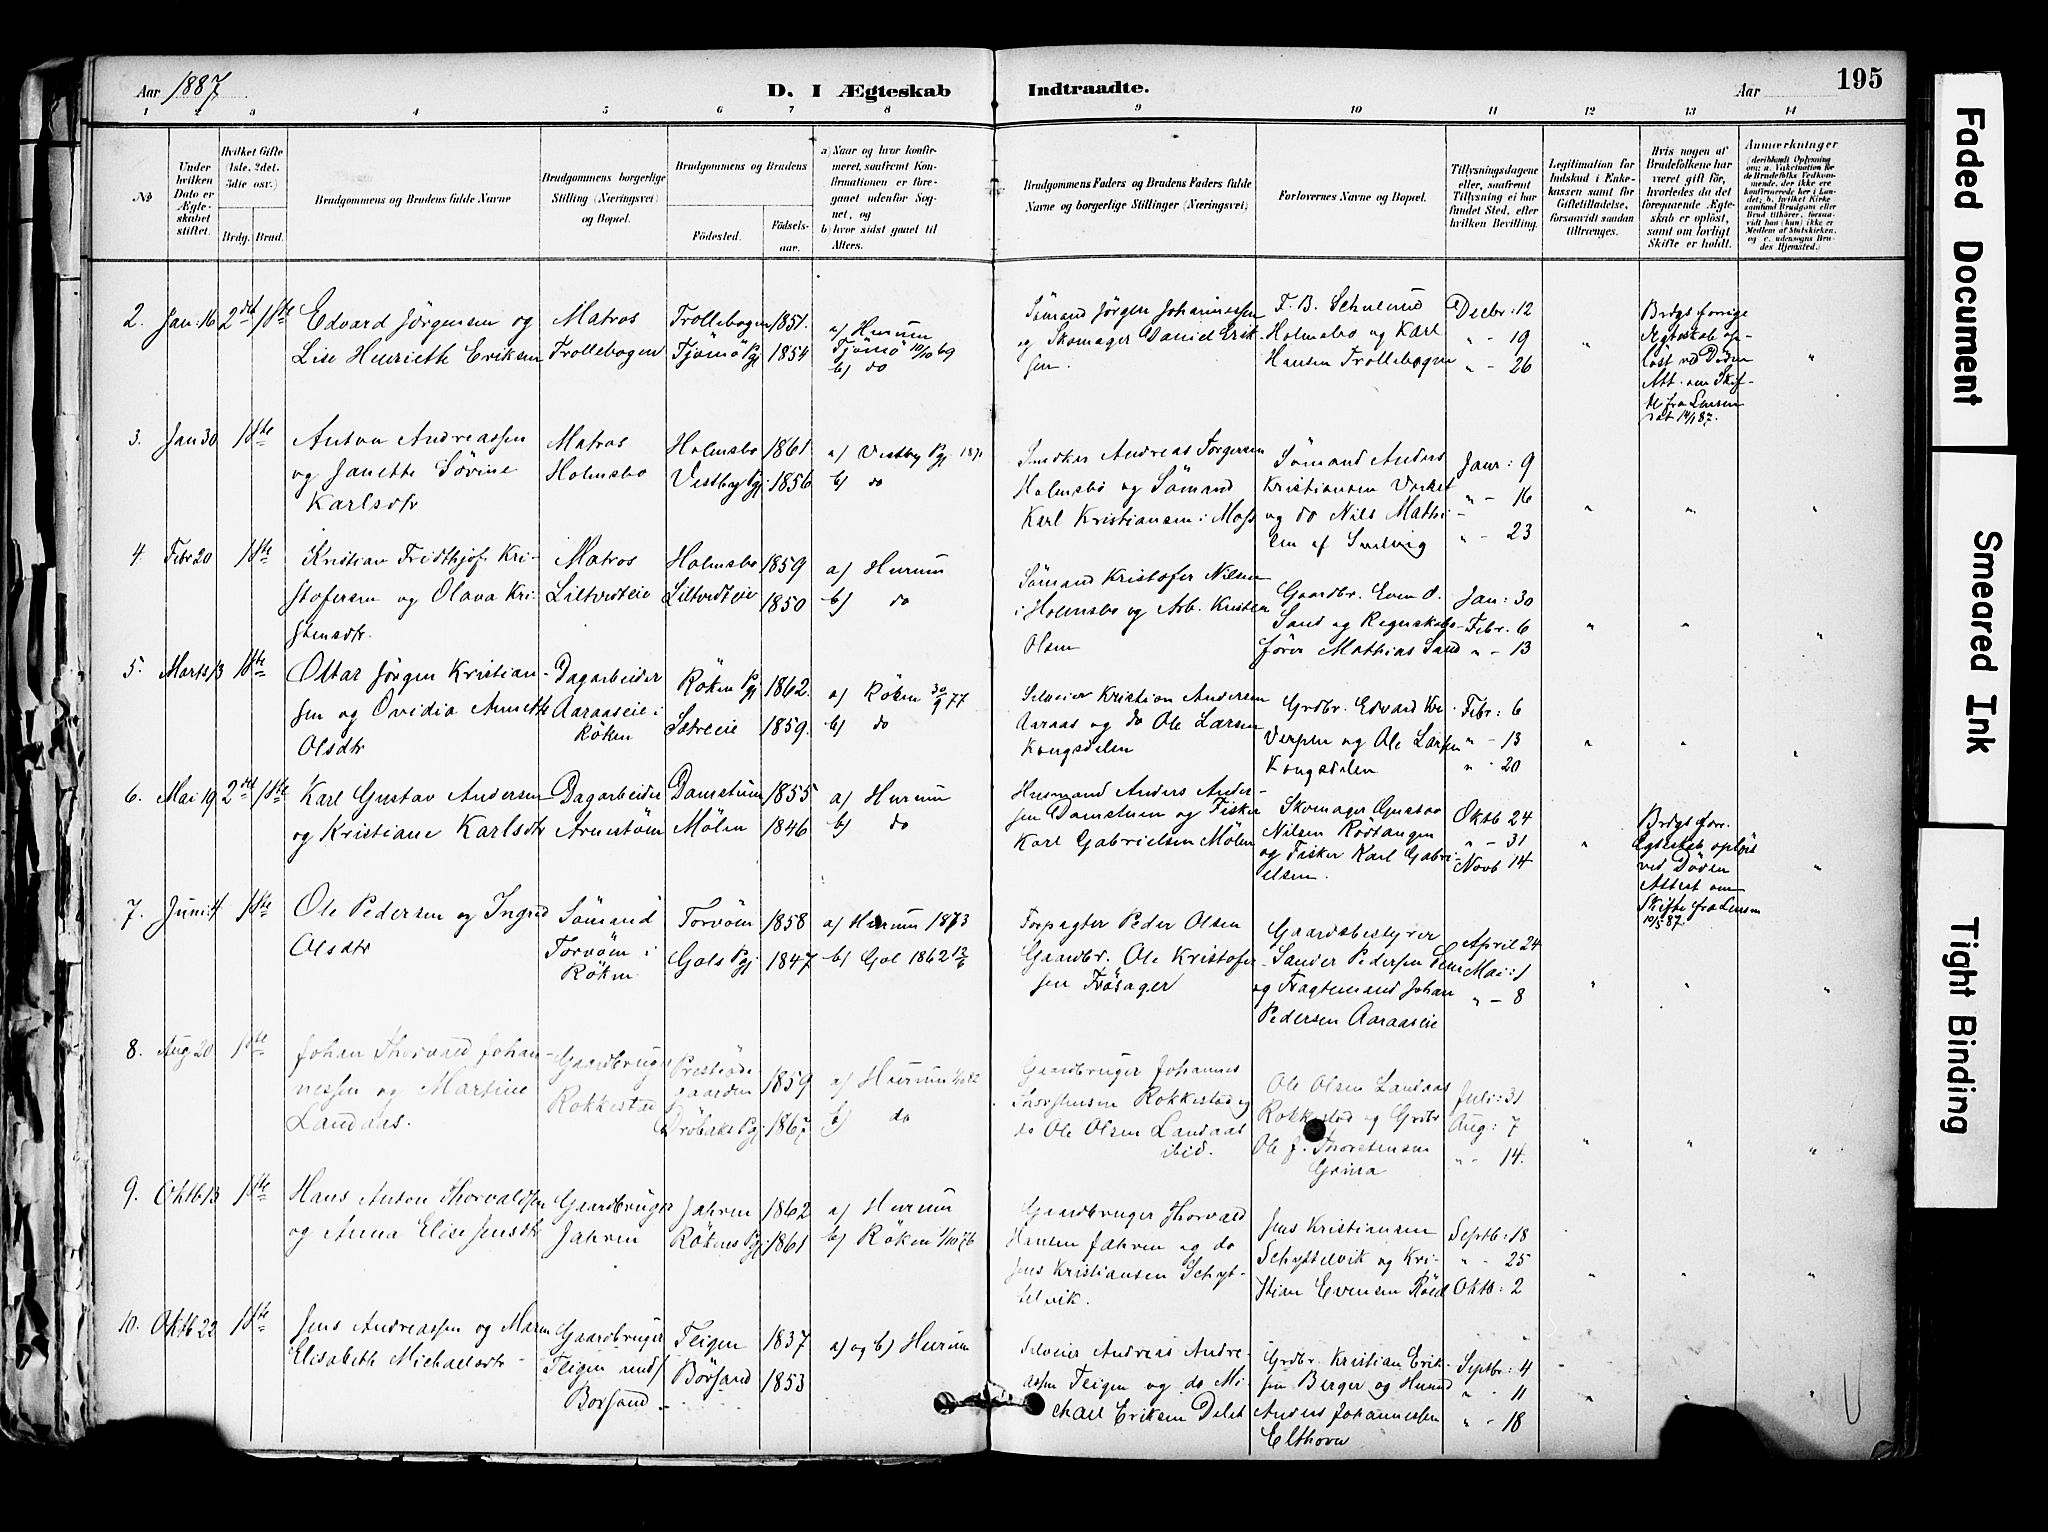 Aar 1887
D. I Ægteskab Indtraadte.
Aar
195
1 2 3 4 5 6 7 8 9 10 11 12 13 14
No
Under hvilken Dato er Ægteskabet stiftet.
Hvilket Gifte (1ste, 2det, 3die osv.)
Brdg. Brud.
Brudgommens og Brudens fulde Navne
Brudgommens borgerlige Stilling (Næringsvei) og Bopæl.
Brudgommens og Brudens
Fødested. Fødselsaar.
a) Naar og hvor konfirmeret, saafremt Konfirmationen er foregaaet udenfor Sognet, og
b) hvor sidst gaaet til Alters.
Brudgommens Faders og Brudens Faders fulde Navne og borgerlige Stillinger (Næringsvei)
Forlovernes Navne og Bopæl.
Tillysningsdagene eller, saafremt Tillysning ei har fundet Sted, efter hvilken Bevilling.
Legitimation for Indskud i Enkekassen samt for Giftetilladelse, forsaavidt saadan tiltrænges.
Hvis nogen af Brudefolkene har været gift før, hvorledes da det foregaaende Ægteskab er opløst, samt om lovligt Skifte er holdt.
Anmærkninger
(deriblandt Oplysning om: a. Vakcination for de Brudefolks Vedkommende, der ikke ere konfirmerede her i Landet; b. hvilket Kirkesamfund Brudgom eller Brud tilhører, forsaavidt han (hun) ikke er Medlem af Statskirken, og c. udensogns Brudes Hjemsted.)
2. Jan: 16 2det 1ste
Edvard Jörgensen og
Lise Henrieth Eriksen
Matros
Trollebogen
Trollebogen 1851.
Tjömö Pgj 1854
a) Hurum
Tjömö 10/10 69
b) do
Sömand Jörgen Johannessen
og Skomager Daniel Erik-
sen.
Holmsbo og Karl
Hansen Trollebogen
Decbr: 12
" - 19
" - 26
"
Brdgs forrige
Ægteskab op-
löst ved Döden
Att. om Skif-
te fra Lensm
dat 14/1 87.
"
3. Jan 30 1ste
Anton Andreassen
og Janette Sövine
Karlsdtr
Matros
Holmsbo
Holmsbo 1861
Vestby Pgj. 1856
a) Vestby Pgj. 1871
b) do
Snedker Andreas Torgersen
Holmsbö og Sömand
Karl Kristiansen i Moss
Sömand Anders
Kristiansen
og do Nils Mathi-
sen af
Janr: 9
" - 16
" - 23
" " "
4. Febr 20 1ste
Kristian Fridthjof Kri-
stofersen og Olava Kri-
stensdtr.
Matros
Liltvedteie
Holmsbo 1859
Liltvedteie 1850
a) Hurum
b) do
Sömand Kristofer Nilsen
i Holmsbo og Arb. Kristen
Olsen
Gaardbr. Even O.
Sand og Regnskabs-
förer Mathias Sand
Jan: 30
Febr. 6
" - 13
" " "
5. Marts 13 1ste
Ottar Jörgen Kristian-
sen og Ovidia Annette
Olsdtr
Dagarbeider
Aaraaseie i
Röken
Röken Pgj 1862.
Sætreeie 1859.
a) Röken 30/9 77
b) do
Selveier Kristian Andersen
Aaraas og do Ole Larsen
Kongsdelen
Grdbr. Edvard
Verpen og Ole Larsen
Kongsdelen
Febr: 6
" - 13
" - 20
" " "
6. Mai 19 2det 1ste
Karl Gustav Andersen
og Kristiane Karlsdtr
Dagarbeider
Arnestöm
Damstuen 1855
Mölen 1846
a) Hurum
b) do
Husmand Anders Ander-
sen Damstuen og Fisker
Karl Gabrielsen Mölen
Skomager Gustav
Nilsen Rödtangen
og Fisker Karl Gabri-
elsen.
Oktb 24
" - 31
Novb 14
"
Brdgs fore.
Egteskab oplöst
ved Döden
Attest om
Skifte fra Lensm
10/5 87.
"
7. Juni 4 1ste
Ole Pedersen og Ingrid
Olsdtr
Sömand
Torvöen i
Röken
Torvöen 1858
Gols Pgj 1847
a) Hurum 1873
b) Gol 1862
Forpagter Peder Olsen
Gaardbr. Ole Kristofer-
sen Fröisager
Gaardsbestyrer
Sander Pedersen
og Fragtemand Johan
Pedersen Aaraaseie
April 24
Mai: 1
" - 8
" " "
8. Aug 20 1ste
Johan Thorvald Johan-
nessen og Martine
Landaas.
Gaardbruger
Rokkestad
Prestegaarden 1859
Dröbaks Pgj. 1867
a) Hurum
b) do
Gaardbruger Johannes
Rokkestad og
do Ole Olsen Landaas
ibid.
Ole Olsen Landaas
Rokkestad og Grdbr
Ole J. Thorstensen
Juli: 31
Aug: 7
" - 14.
" " "
9. Oktb 13 1ste
Hans Anton Thorvaldsen
og Anna Elise Jensdtr
Gaardbruger
Jahren
Jahren 1862
Rökens Pgj 1861
a) Hurum
b) Röken 1/10 76
Gaardbruger Thorvald
Hansen Jahren og do
Jens Kristiansen Schyt-
telvik.
Jens Kristiansen
Schyttelvik og Kri-
stian Evensen Röed
Septb: 18
" - 25
Oktb: 2
" " "
10. Oktb 22 1ste
Jens Andreassen og Maren
Elisabeth Michaelsdtr
Gaardbruger
Teigen und/
Börsand
Teigen 1837
Börsand 1853
a) og b) Hurum
Selveier Andreas Andre-
assen Teigen og do Mi-
chael Eriksen
Grdbr. Kristian Erik-
sen Berger og Husmd
Anders Johannessen
Elthoven
Septbr: 4
" - 11
" - 18
" " "
Faded Document
Smeared Ink
Tight Binding